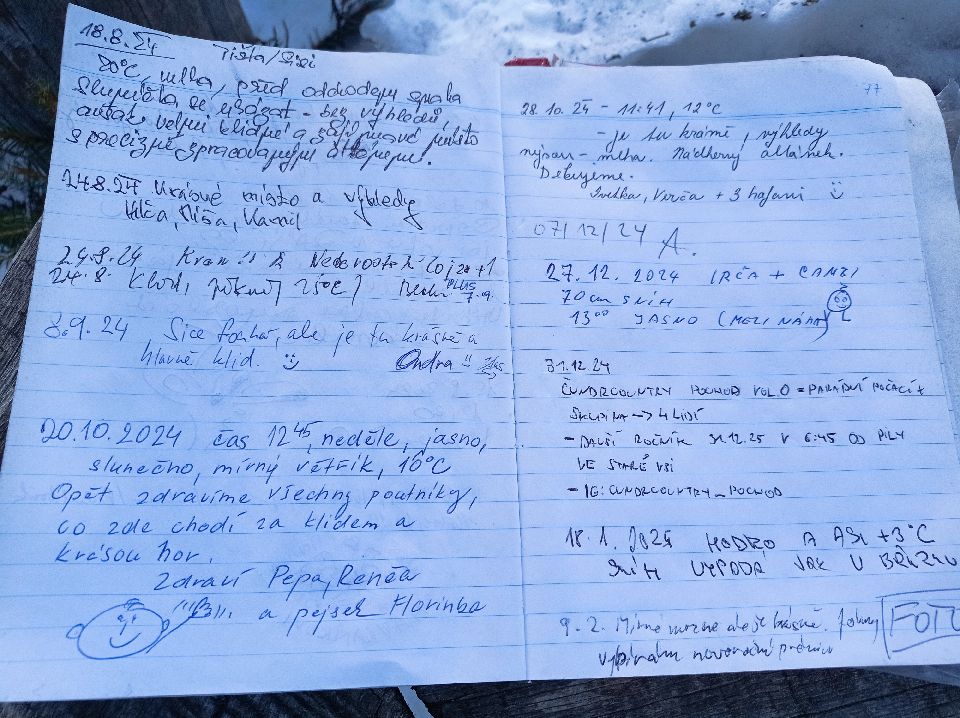 18.8.24
20°C, mlha, před odchodem
skupinka se
avšak velmi klidné a místo
s precizně zpracovaným
24.8.24 Krásné místo a výhledy
Míša, Kamil
24.8.24
24.8. Klid, 25°C
PLUS
7.9.
8.9.24 Sice fouká, ale je tu krásně a
hlavně klid.
Ondra
20.10.2024 čas 12 45, neděle, jasno,
slunečno, mírný větřík, 10°C
Opět zdravíme všechny poutníky,
co zde chodí za klidem a
krásou hor.
Zdraví Pepa, Renča
a pejsek Florinka
77
28.10.24 - 11:41, 12°C
- je tu krásně, výhledy
nejsou - mlha. Nádherný altánek.
Děkujeme.
Ivetka, Verča + 3 hafani
07/12/24 A.
27.12.2024 IRČA +
70cm SNÍH
13 00 JASNO (MEZI NÁMA)
31.12.24
ČUNDRCOUNTRY POCHOD VOL 0 = PARÁDNÍ POČASÍ +
SKUPINA -> 4 LIDÍ
- DALŠÍ ROČNÍK 31.12.25 V 6:45 OD PILY
VE STARÉ VSI
- IG: CUNDRCOUNTRY_POCHOD
18.1.2025 MODRO A ASI +3°C
SNÍH VYPADÁ JAK V BŘEZNU
9.2. Mírně mrzne ale je krásně.
vybírám novoroční prémii
FOTO